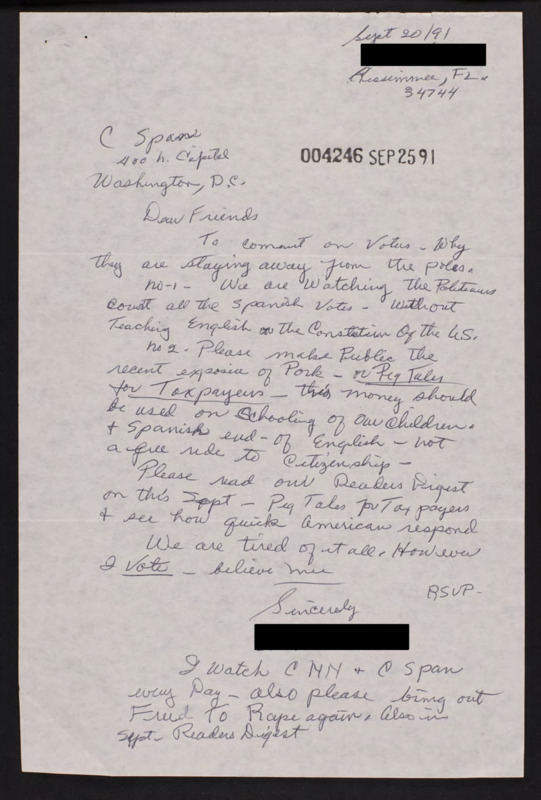 Sept 20/91
Kissimmee, FL.
34744
C Span
400 N. Capital
Washington, D.C.
004246 SEP 25 91
Dear Friends
To coment on Votes - Why
they are staying away from the poles.
No-1- We are Watching the Politicians
Court all the Spanish Votes - Without
Teaching English or the Constetion Of the U.S.
No 2. Please make Public the
recent exposia of Pork - or Pig Tales
for Taxpayers - this money should
be used on Schooling of our children.
& Spanish end - of English - not
a free ride to Citizenship -
Please read our Readers Digest
on this Sept - Pig Tales for Tax payers
& see how quick American respond
We are tired of it all. However
I Vote - believe me
RSVP-
Sincerely
I Watch CNN & C Span
every Day - also please bring out
Freed To Rape again. Also in
Sept. Readers Digest